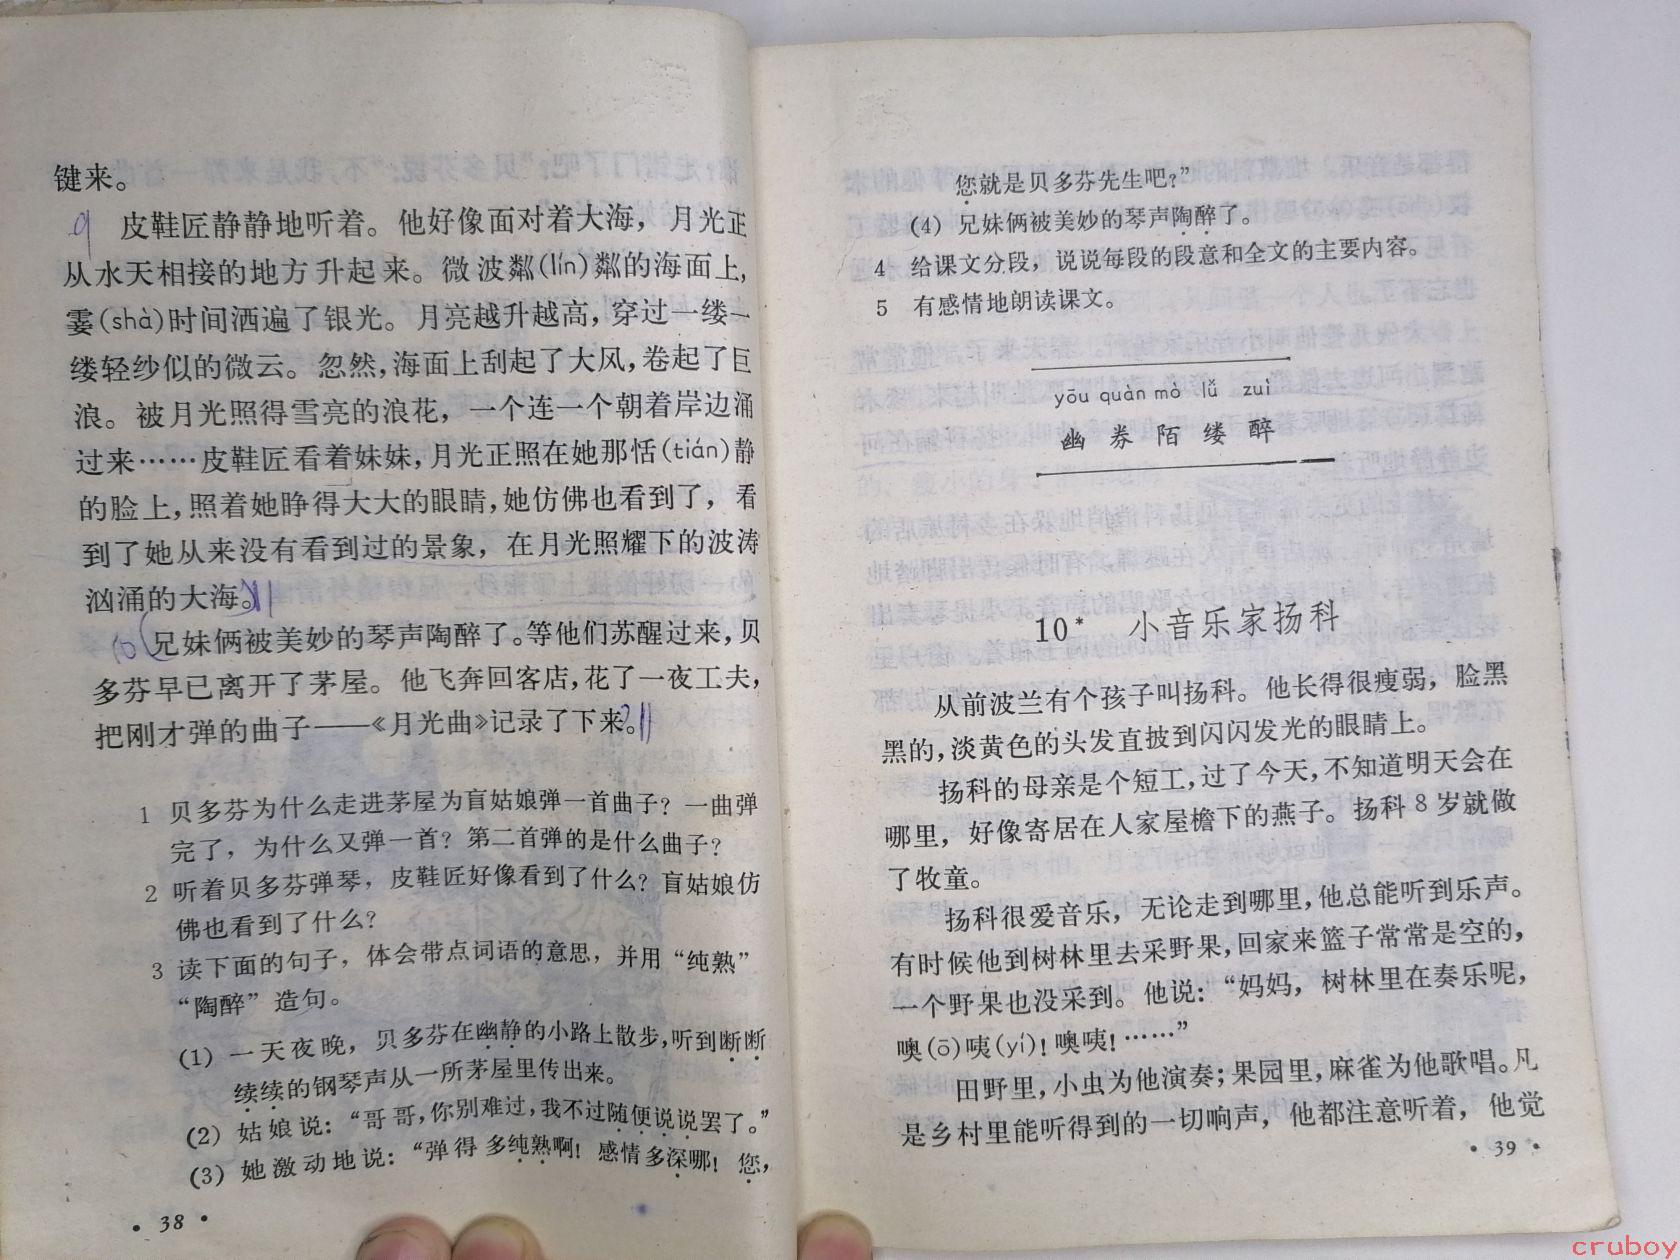 键来。
皮鞋匠静静地听着。他好像面对着大海，月光正
从水天相接的地方升起来。微波粼(lín)粼的海面上，
霎(shà)时间洒遍了银光。月亮越升越高，穿过一缕一
缕轻纱似的微云。忽然，海面上刮起了大风，卷起了巨
浪。被月光照得雪亮的浪花，一个连一个朝着岸边涌
过来……皮鞋匠看着妹妹，月光正照在她那恬(tián)静
的脸上，照着她睁得大大的眼睛，她仿佛也看到了，看
到了她从来没有看到过的景象，在月光照耀下的波涛
汹涌的大海。
兄妹俩被美妙的琴声陶醉了。等他们苏醒过来，贝
多芬早已离开了茅屋。他飞奔回客店，花了一夜工夫，
把刚才弹的曲子——《月光曲》记录了下来。
1 贝多芬为什么走进茅屋为盲姑娘弹一首曲子？一曲弹
完了，为什么又弹一首？第二首弹的是什么曲子？
2 听着贝多芬弹琴，皮鞋匠好像看到了什么？盲姑娘仿
佛也看到了什么？
3 读下面的句子，体会带点词语的意思，并用“纯熟”
“陶醉”造句。
(1) 一天夜晚，贝多芬在幽静的小路上散步，听到断断
续续的钢琴声从一所茅屋里传出来。
(2) 姑娘说：“哥哥，你别难过，我不过随便说说罢了。”
(3) 她激动地说：“弹得多纯熟啊！感情多深哪！您，
• 38 •
您就是贝多芬先生吧？”
(4) 兄妹俩被美妙的琴声陶醉了。
4 给课文分段，说说每段的段意和全文的主要内容。
5 有感情地朗读课文。
yōu quàn mò lǚ zuì
幽 券 陌 缕 醉
10* 小音乐家扬科
从前波兰有个孩子叫扬科。他长得很瘦弱，脸黑
黑的，淡黄色的头发直披到闪闪发光的眼睛上。
扬科的母亲是个短工，过了今天，不知道明天会在
哪里，好像寄居在人家屋檐下的燕子。扬科8岁就做
了牧童。
扬科很爱音乐，无论走到哪里，他总能听到乐声。
有时候他到树林里去采野果，回家来篮子常常是空的，
一个野果也没采到。他说：“妈妈，树林里在奏乐呢，
噢(ō)咦(yí)！噢咦！……”
田野里，小虫为他演奏；果园里，麻雀为他歌唱。凡
是乡村里能听得到的一切响声，他都注意听着，他觉
• 39 •
cruboy